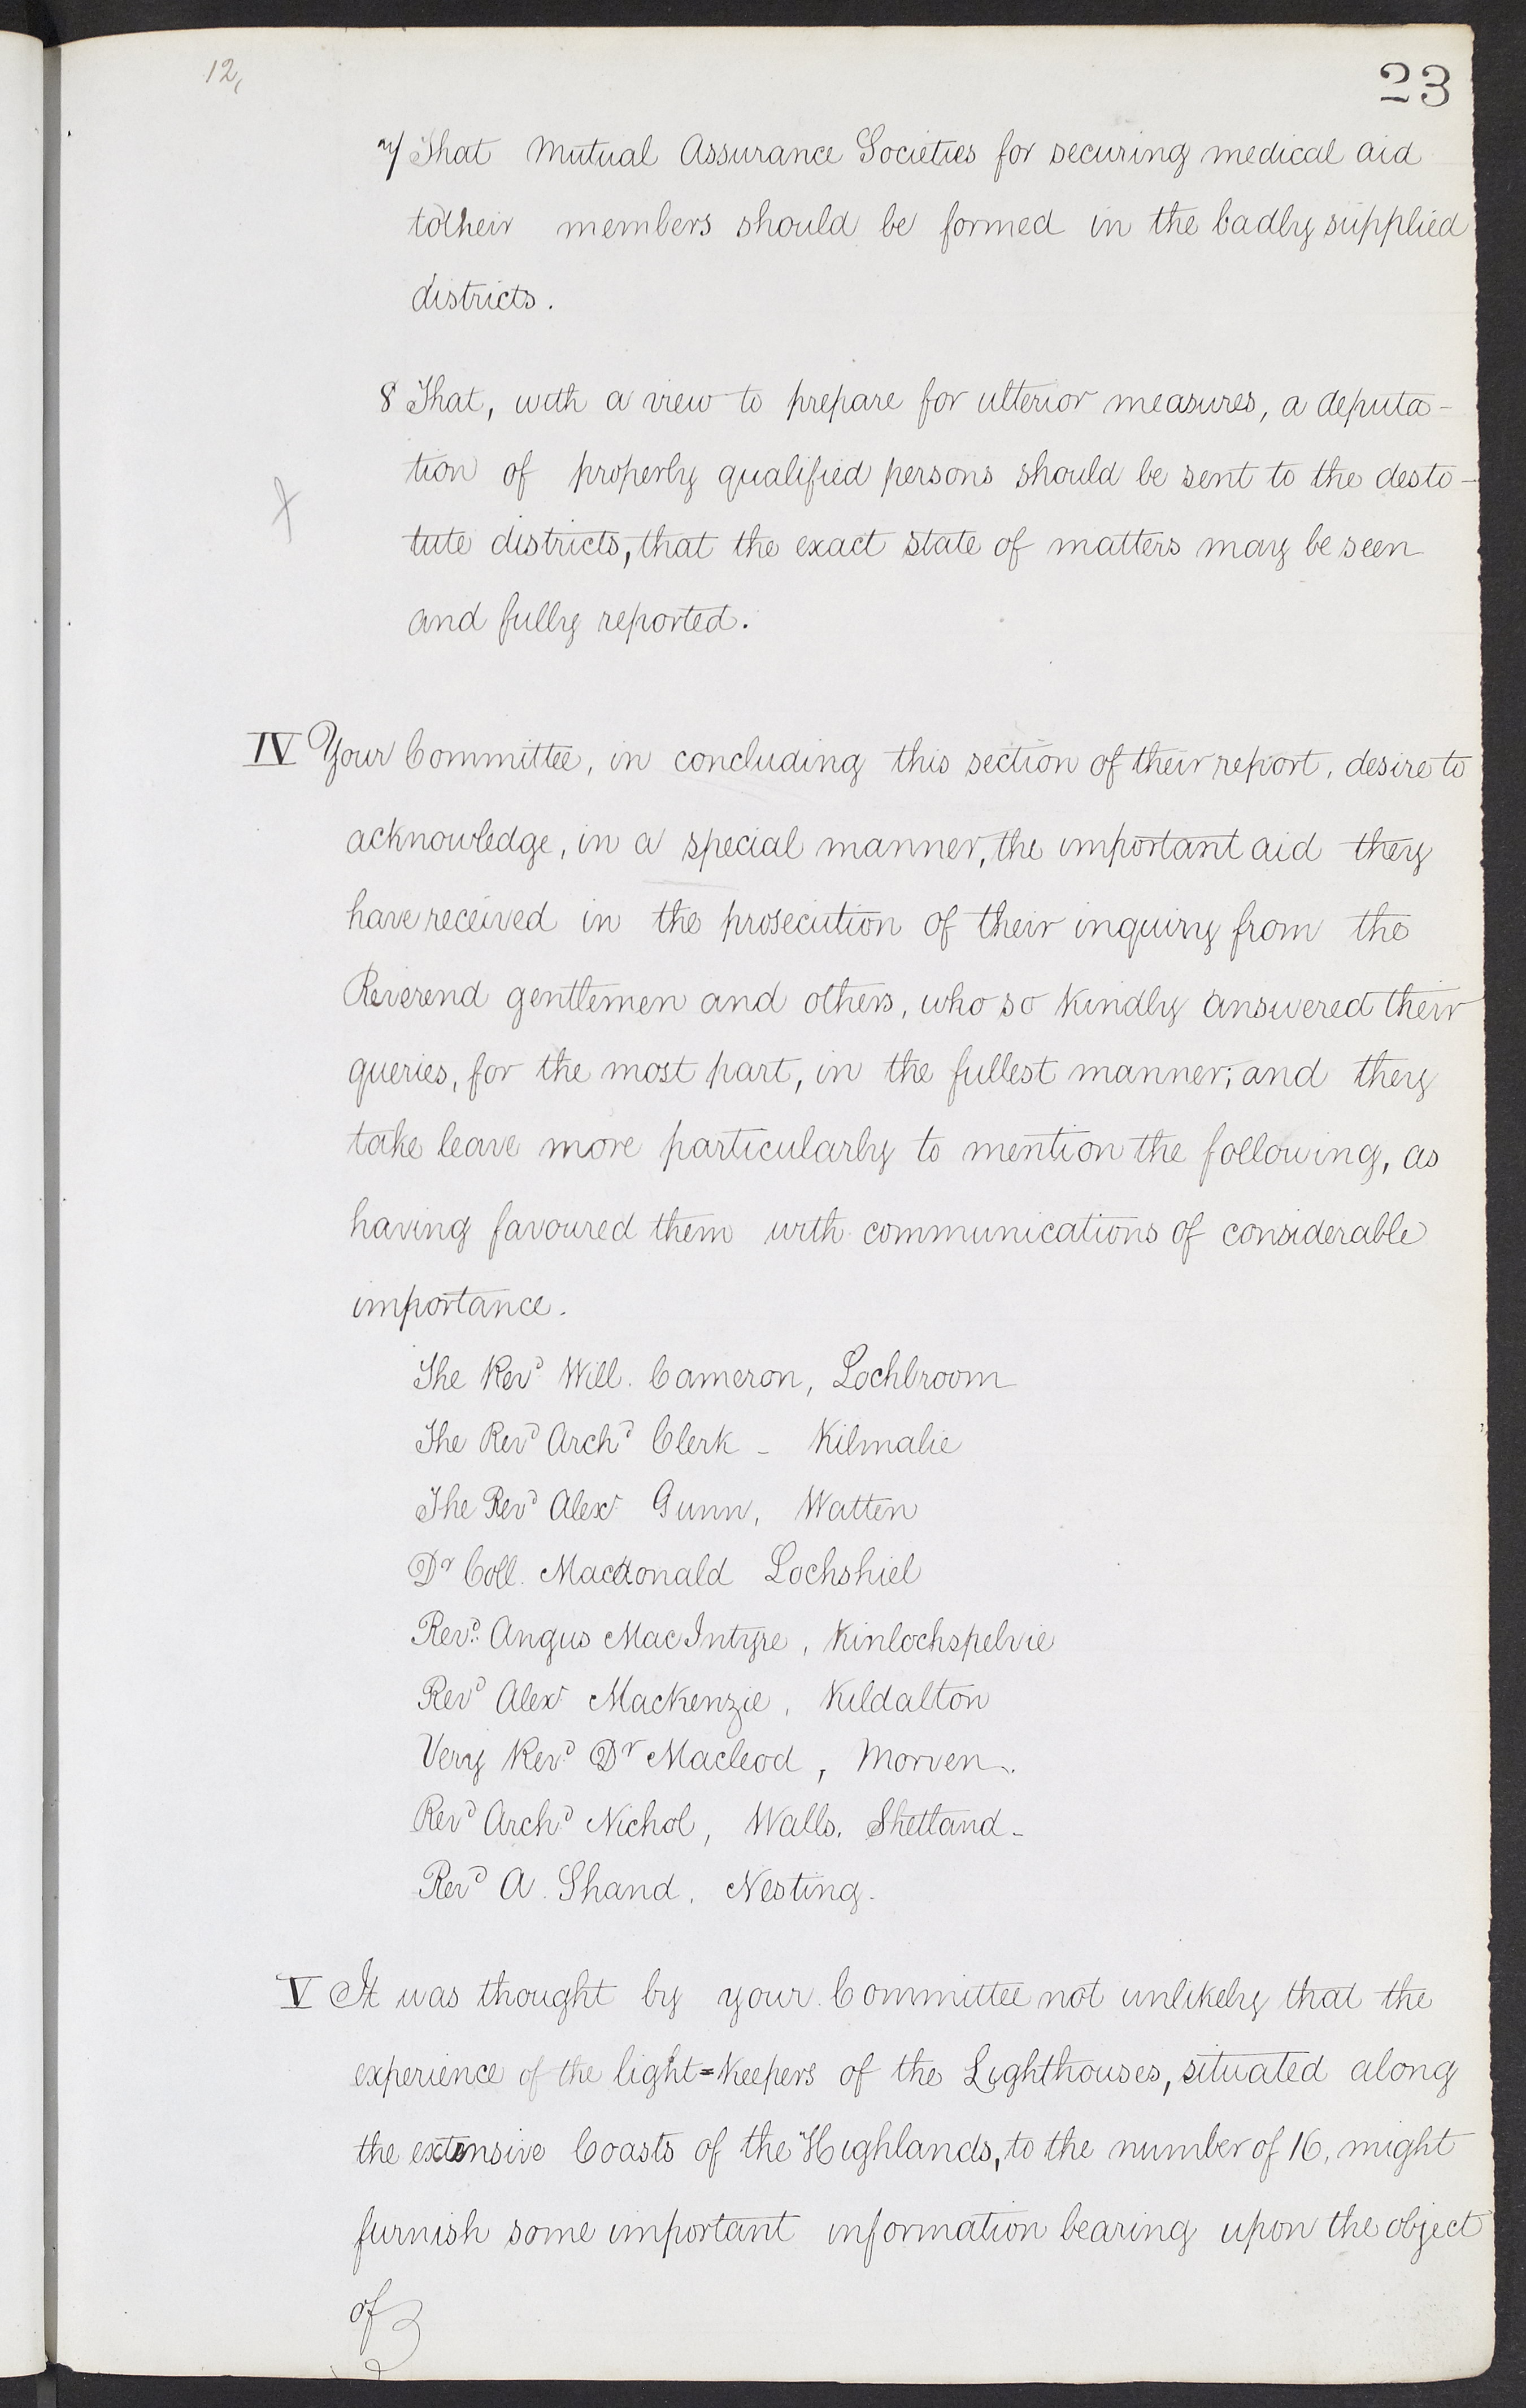 12,
23
7/ That Mutual Assurance Societies for securing medical aid
to their members should be formed in the badly supplied
districts.
8 That, with a view to prepare for ulterior measures, a deputa-
tion of properly qualified persons should be sent to the desto-
tute districts, that the exact state of matters may be seen
and fully reported.
IV Your Committee, in concluding this section of their report, desire to
acknowledge, in a special manner, the important aid they
have received in the prosecution of their inquiry from the
Reverend gentlemen and others, who so kindly answered their
queries, for the most part, in the fullest manner; and they
take leave more particularly to mention the following, as
having favoured them with communications of considerable
importance.
The Revd Will. Cameron, Lochbroom
The Revd Archd Clerk - Kilmalie
The Revd Alexr Gunn, Watten
Dr Coll. Macdonald Lochshiel
Revd. Angus MacIntyre, Kinlochspelvie
Revd Alexr Mackenzie, Kildalton
Very Revd Dr Macleod, Morven.
Revd Archd Nichol, Walls, Shetland-
Revd A. Shand, Nesting.
V It was thought by your Committee not unlikely that the
experience of the light=keepers of the Lighthouses, situated along
the extensive Coasts of the Highlands, to the number of 16, might
furnish some important information bearing upon the object
of